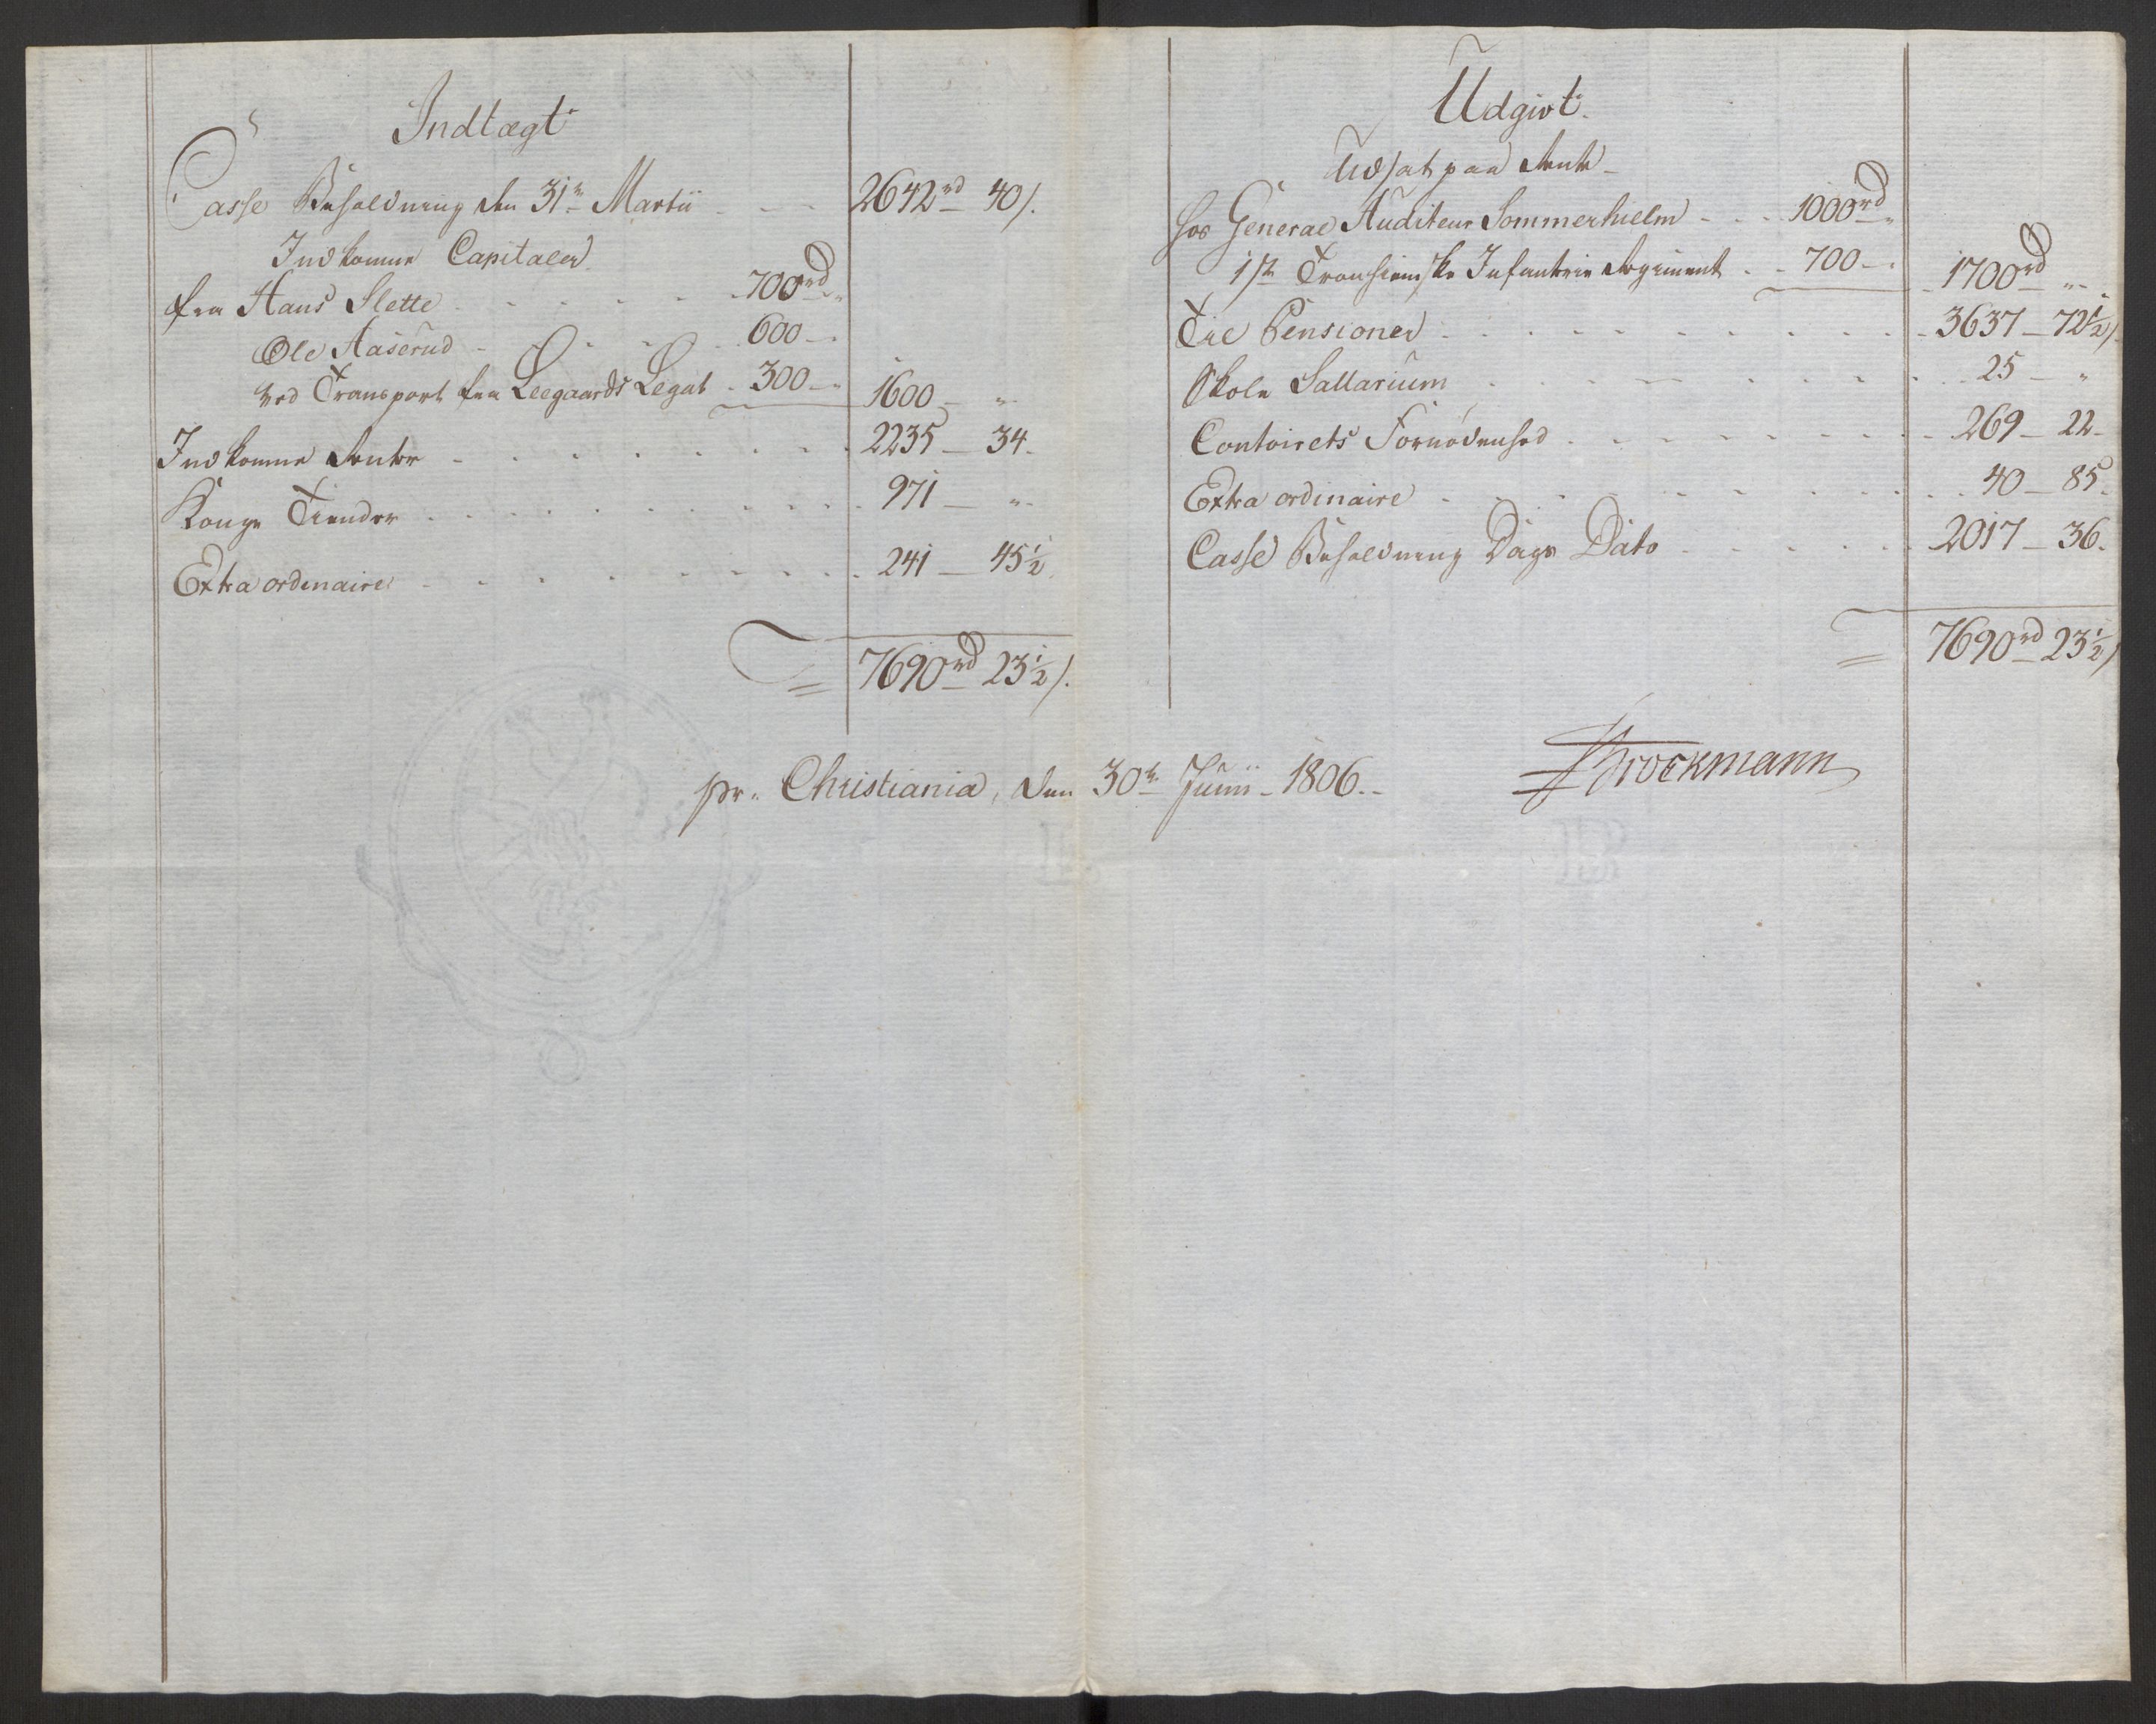 Indtægt
Casse Beholdning den 31te Martii - - - 2642rd 40s.
Indkomne Capitaler
fra Hans Slette - - - - - 700rd „
Ole Aaserud - - - - 600 - „
ved Transport fra Leegaards Legat - 300 - „ 1600 - „
Indkomne Renter - - - - - - - 2235 - 34.
Konge Tiender - - - - - - - - - 971 - „
Extra ordenaire - - - - - - - - 241 - 45½
= 7690rd 23½s.
Udgivt.
Udsat paa Rente -
hos General Auditeur Sommerhielm - - - 1000rd „
1ste Tronhiemske Infanterie Regiment - - 700 - „ 1700rd „
Til Pensioner - - - - - - - - - 3637 - 72½s.
Skole Sallarium - - - - - - - - 25 - „
Contoirets Fornødenhed - - - - - - - - 269 - 22 -
Extra ordinaire - - - - - - - - - 40 - 85.
Casse Beholdning Dags Dato - - - - - - 2017 - 36.
= 7690rd 23½s
pr. Christiania, den 30te Junii - 1806. -
Brockmann